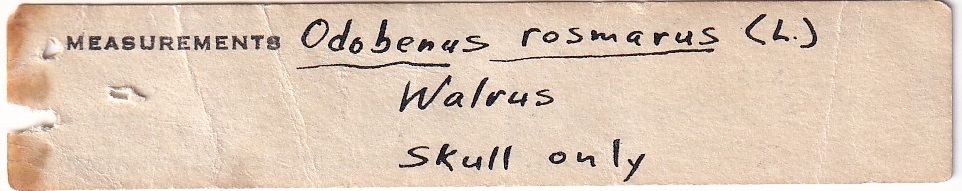 MEASUREMENTS Odobenus rosmarus (L.)
Walrus
Skull only